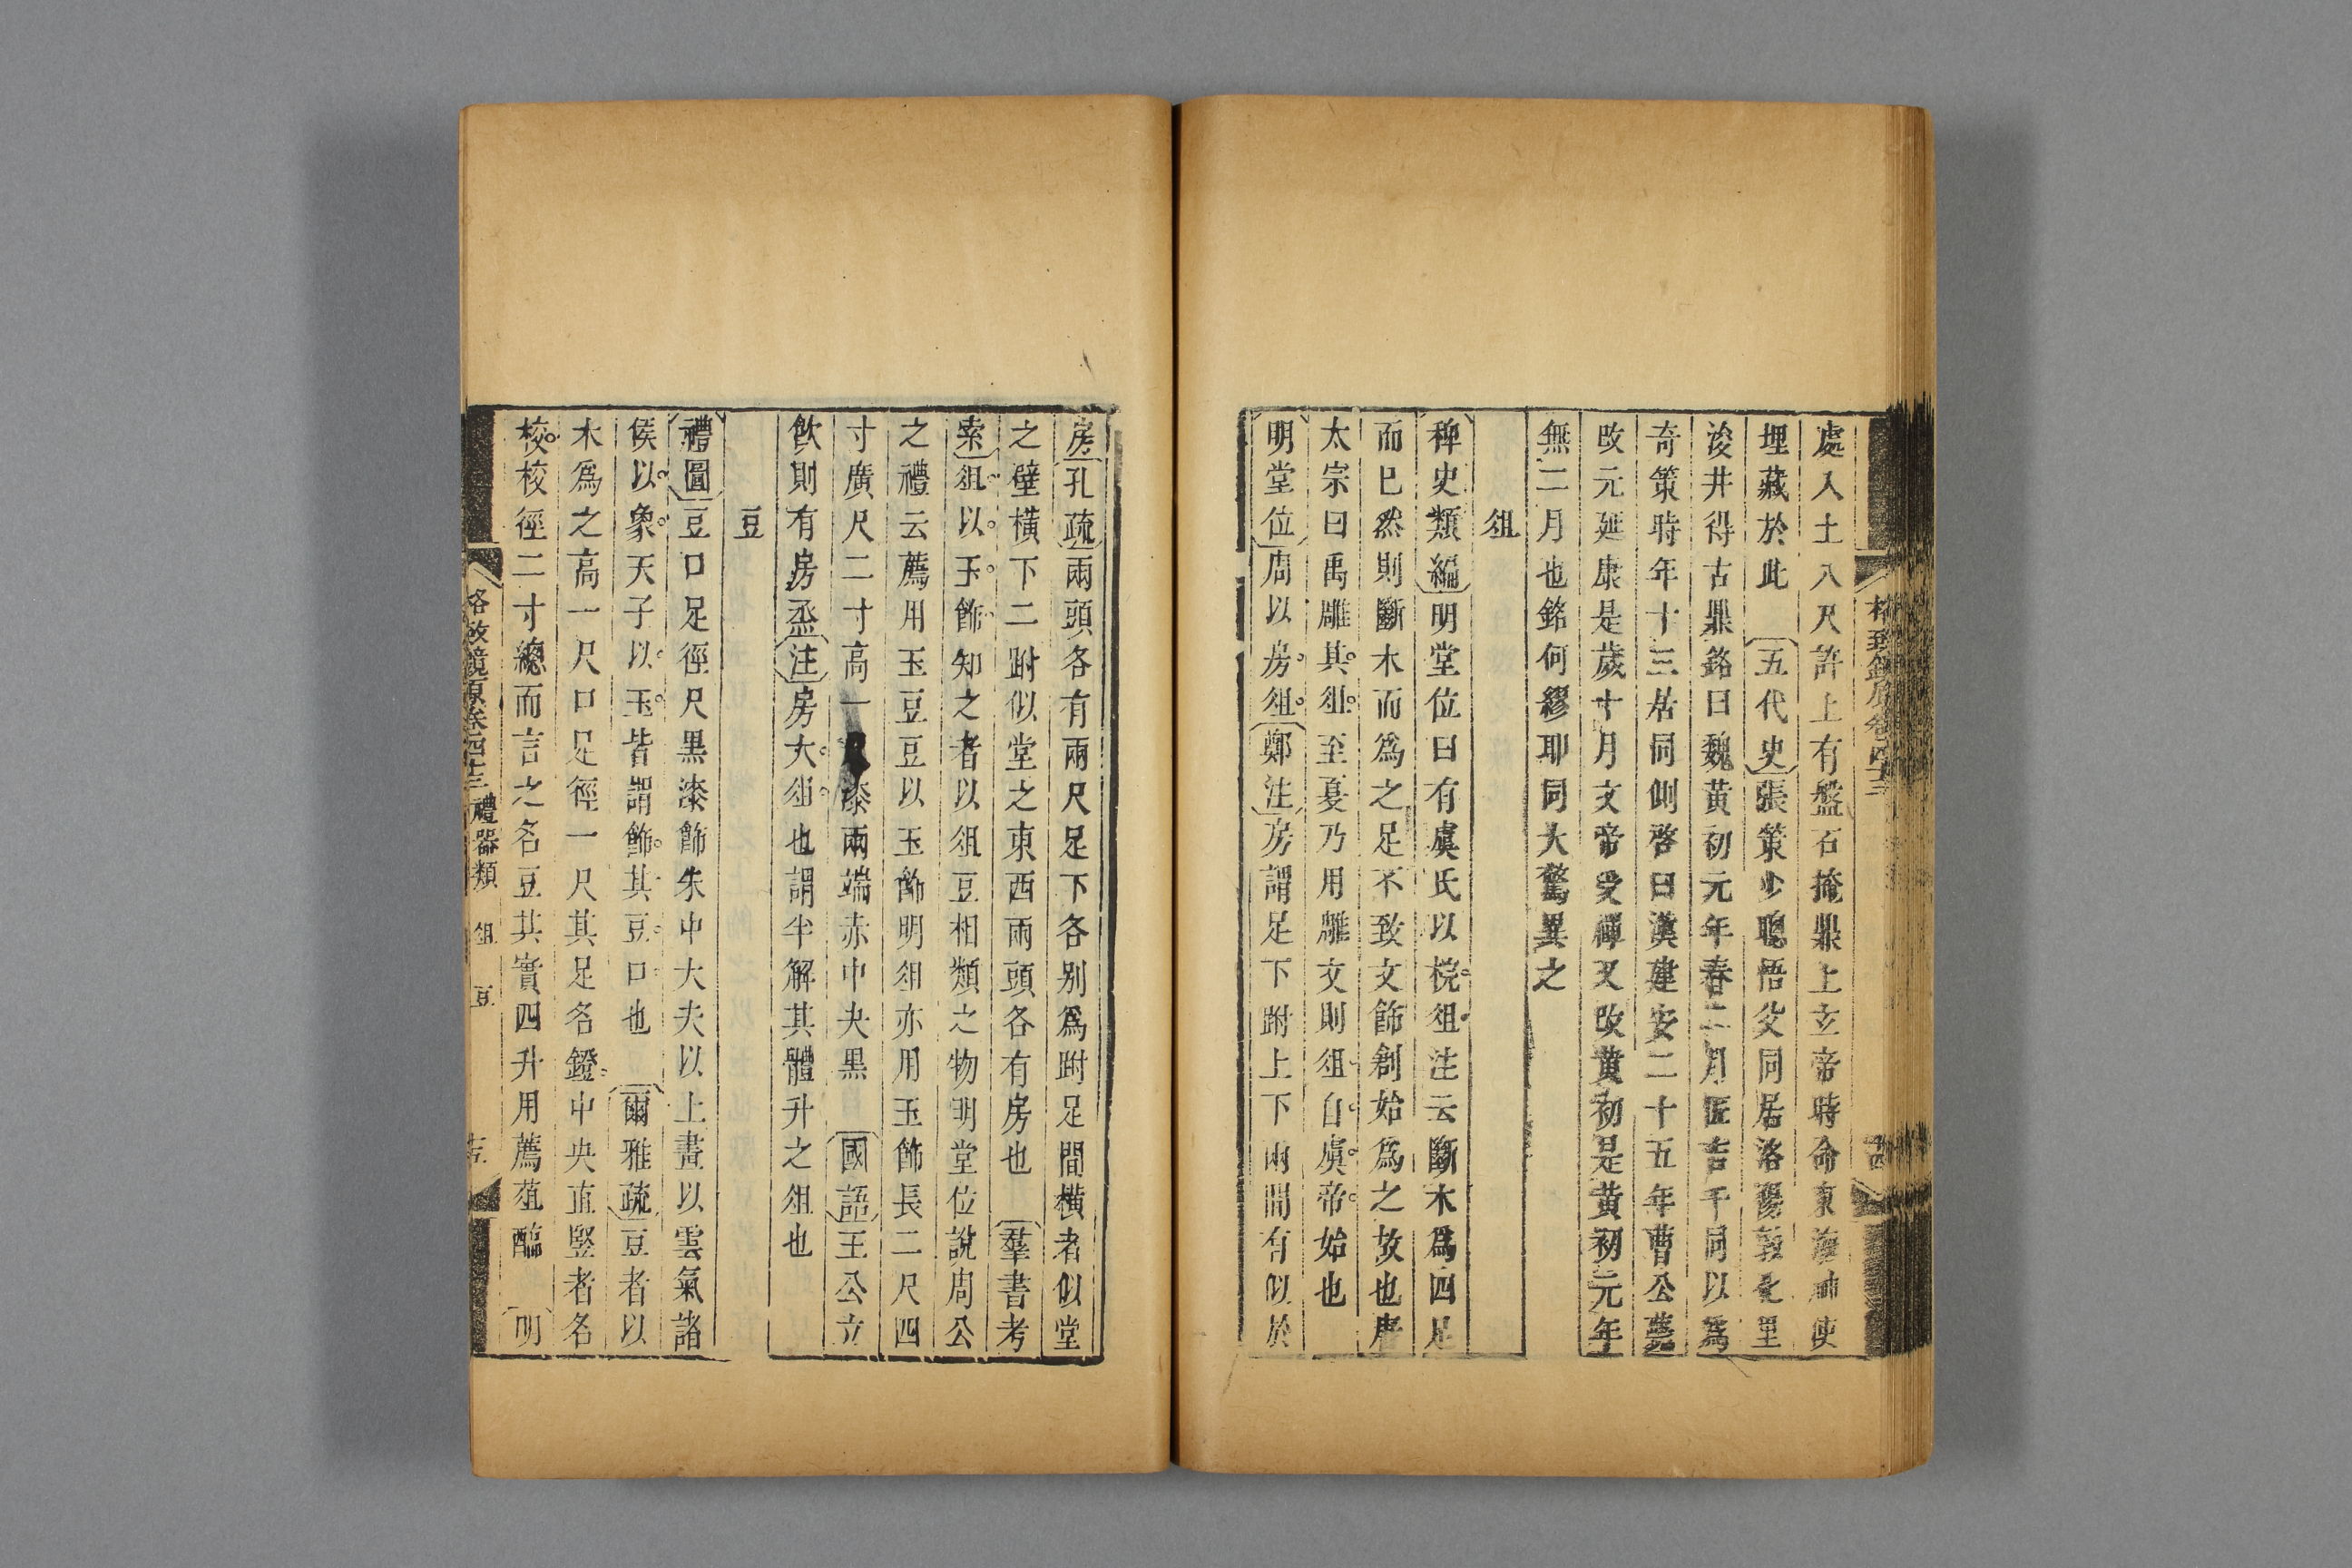 處入土八尺許上有盤石掩鼎上玄帝時命東海神使
埋藏於此　五代史張策少聰悟父同居洛陽敦化里
浚井得古鼎銘曰魏黃初元年春二月匠吉千同以爲
奇策時年十三居同側啓曰漢建安二十五年曹公薨
改元延康是歲十月文帝受禪又改黃初是黃初元年
無二月也銘何繆耶同大驚異之
俎
稗史類編明堂位曰有虞氏以梡俎注云斷木爲四足
而已然則斷木而爲之足不致文飾創始爲之故也唐
太宗曰禹雕其俎至夏乃用雕文則俎自虞帝始也
明堂位周以房俎鄭注房謂足下跗上下兩間有似於
房孔疏兩頭各有兩尺足下各别爲跗足間橫者似堂
之壁橫下二跗似堂之東西兩頭各有房也　羣書考
索俎以玉飾知之者以俎豆相類之物明堂位說周公
之禮云薦用玉豆豆以玉飾明俎亦用玉飾長二尺四
寸廣尺二寸高一尺漆兩端赤中央黑　國語王公立
飫則有房烝注房大俎也謂半解其體升之俎也
豆
禮圖豆口足徑尺黑漆飾朱中大夫以上畫以雲氣諸
侯以象天子以玉皆謂飾其豆口也　爾雅疏豆者以
木爲之高一尺口足徑一尺其足名鐙中央直竪者名
校校徑二寸總而言之名豆其實四升用薦菹醢　明
格致鏡原卷四十三　禮器類　俎　豆